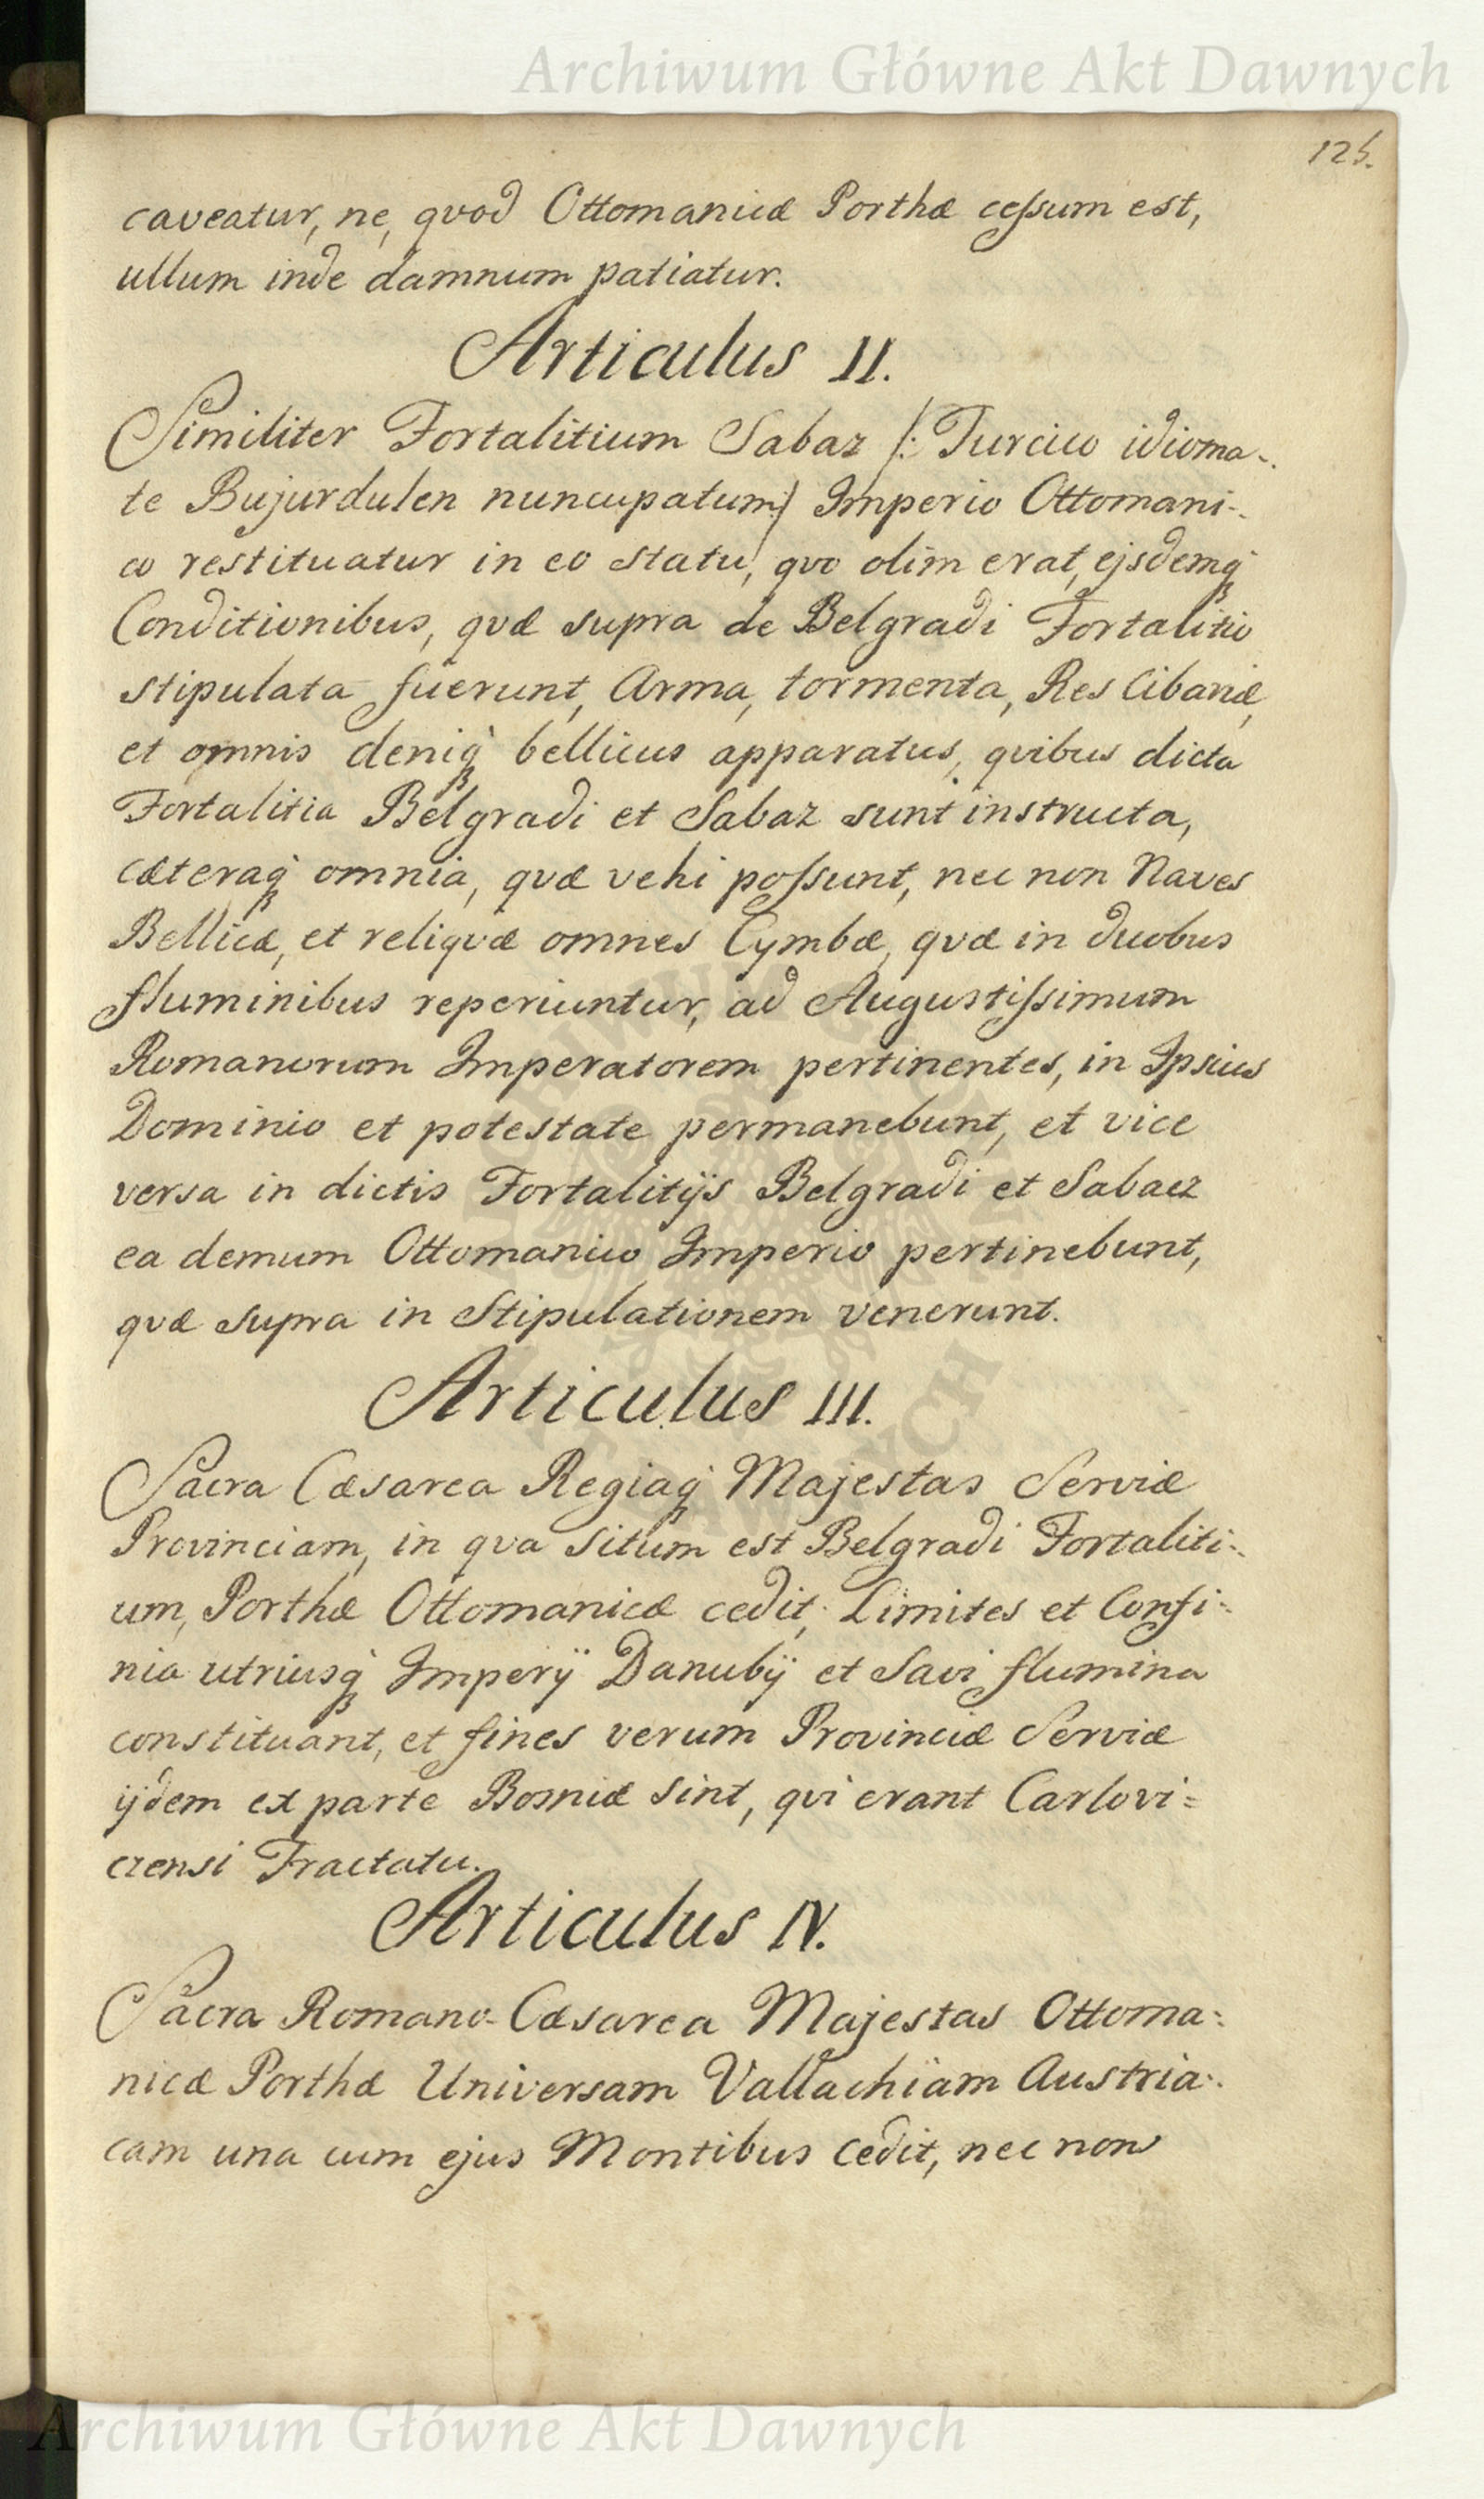 Archiwum Główne Akt Dawnych
125.
caveatur, ne, qvod Ottomanicæ Porthæ ceſsum est,
ullum inde damnum patiatur.
Articulus II.
Similiter Fortalitium Sabaz /: Turcico idioma-
te Bujurdulen nuncupatum:/ Imperio Ottomani-
co restituatur in eo statu, qvo olim erat, ejsdemq
Conditionibus, qvæ supra de Belgradi Fortalitio
stipulata fuerunt, Arma, tormenta, Res Cibariæ,
et omnis deniq bellicus apparatus, qvibus dicta
Fortalitia Belgradi et Sabaz sunt instructa,
cæteraq omnia, qvæ vehi poſsunt, nec non Naves
Bellicæ, et reliqvæ omnes Cymbæ, qvæ in duobus
fluminibus reperiuntur, ad Augustiſsimum
Romanorum Imperatorem pertinentes, in Ipsius
Dominio et potestate permanebunt, et vice
versa in dictis Fortalitijs Belgradi et Sabacz
ea demum Ottomanico Imperio pertinebunt,
qvæ supra in Stipulationem venerunt.
Articulus III.
Sacra Cæsarea Regiaq Majestas Serviæ
Provinciam, in qva situm est Belgradi Fortaliti-
um, Porthæ Ottomanicæ cedit; Limites et Confi-
nia utriusq Imperij Danubij et Savi flumina
constituant, et fines verum Provinciæ Serviæ
ijdem ex parte Bosniæ sint, qvi erant Carlovi=
czensi Tractatu.
Articulus IV.
Sacra Romano-Cæsarea Majestas Ottoma-
nicæ Porthæ Universam Vallachiam Austria-
cam una cum ejus Montibus cedit, nec non
Archiwum Główne Akt Dawnych